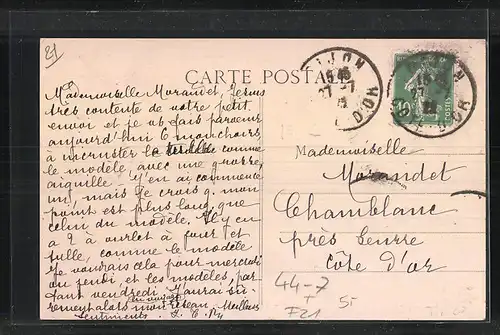 21
CARTE POSTALE
DIJON
COTE D'OR
Mademoiselle Morandet, Je suis
très contente de votre petit
envoi et je vs fais parvenir
aujourd'hui 6 mouchoirs
à incruster comme
le modèle, avec une grosse
aiguille. J'en ai commencé
un, mais je crois q. mon
point est plus long que
celui du modèle. Il y en
a 2 à ourlet à jour et
tulle, comme le modèle
Je voudrais cela pour mercredi
ou jeudi, et les modèles, par
tant vendredi. J'aurai
alors mon réseau. Meilleurs
Sentiments.
Mademoiselle
Morandet
Chamblanc
près Seurre
Côte d'or
44-7
F21